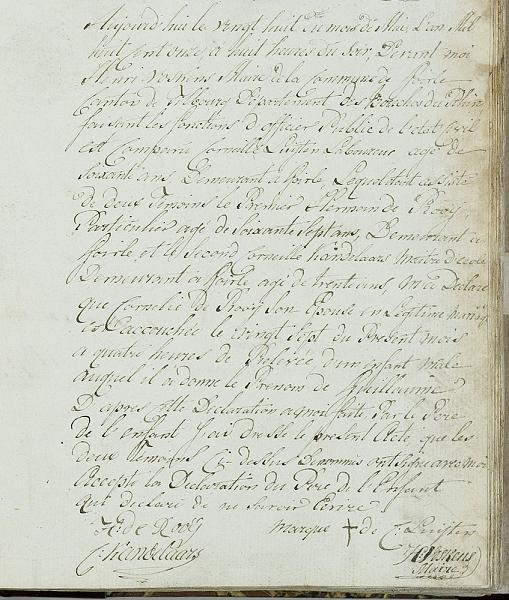 Aujourd'hui le vingt huit du mois de Mai, L'an Mil
huit cent onze, à huit heures du soir, Devant moi
Henri Maire de la Commune de Goirle
Canton de Tilbourg Departement des Bouches du Rhin
faisant les fonctions d'officier Public de l'etat Civil
est Comparu Corneille Luijten Laboureur agé de
Soixante ans Demeurant a Goirle, Lequel étant assisté
de deux Temoins le Premier Herman de Rooij,
Particulier agé de Soixante Sept ans, Demeurant a
Goirle et le Second Corneille handelaars maitre d'ecole
Demeurant a Goirle agé de trente ans, m'a Declaré
que Cornelie De Rooij son Epouse en Legitime mariage
est accouchée le vingt Sept du Present mois
a quatre heures de Relevée d'un enfant male
auquel il a donné le Prenom de Guillaume
D'apres cette Declaration a moi faite Par le Pere
de l'enfant j'ai Dressé le present Acte, que les
deux Temoins Ci-dessus Denommés ont signé avec moi
Excepté la Declaration du Pere de l'Enfant
qui declare de ne savoir Ecrire
H. de Rooij marque † de C. Luijten
C. handelaars
Maire